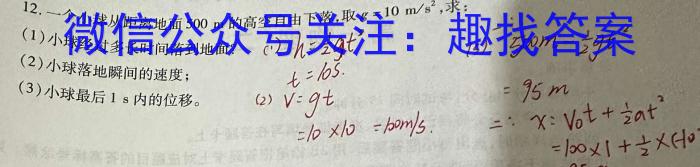 12.一个小球从距离地面500 m的高空自由下落,取g=10 m/s²,求:
(1)小球经过多长时间落到地面?
(2)小球落地瞬间的速度;
(3)小球最后1 s内的位移。
微信公众号关注：趣找答案
t=10s.
(2) V=gt
=10×10 =100m/s.
=95m
x=V₀t+½at²
=100×1+½×(-10